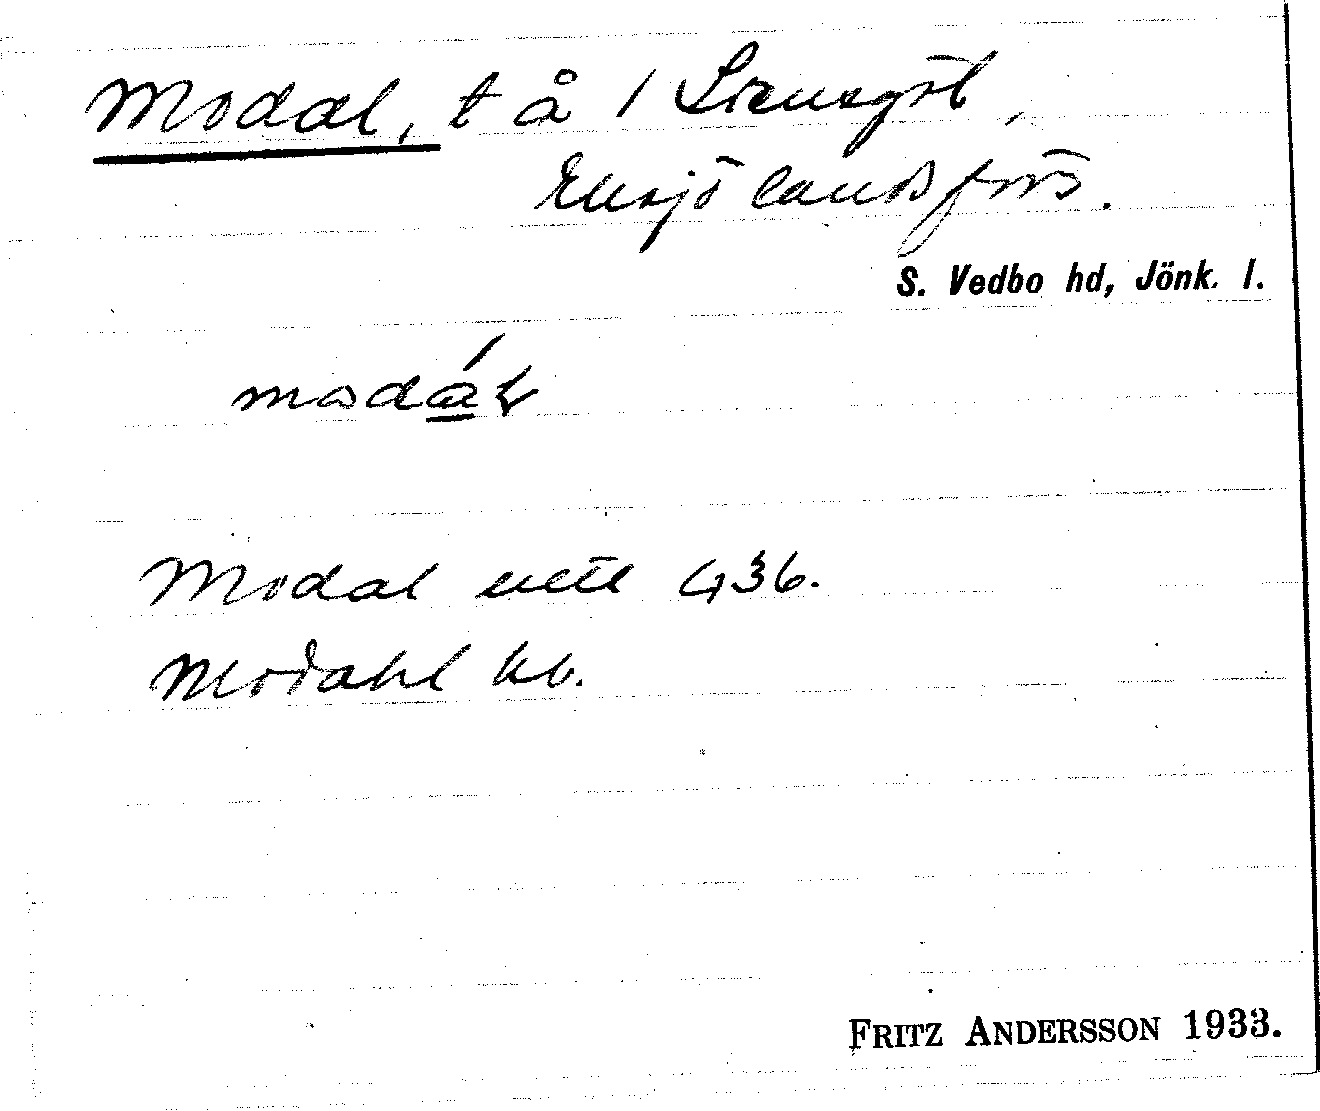 Modal, t å / Stensgöl,
Eksjö landsförs.
S. Vedbo hd, Jönk. l.
modál
Modal 436.
Modahl kb.
FRITZ ANDERSSON 1933.